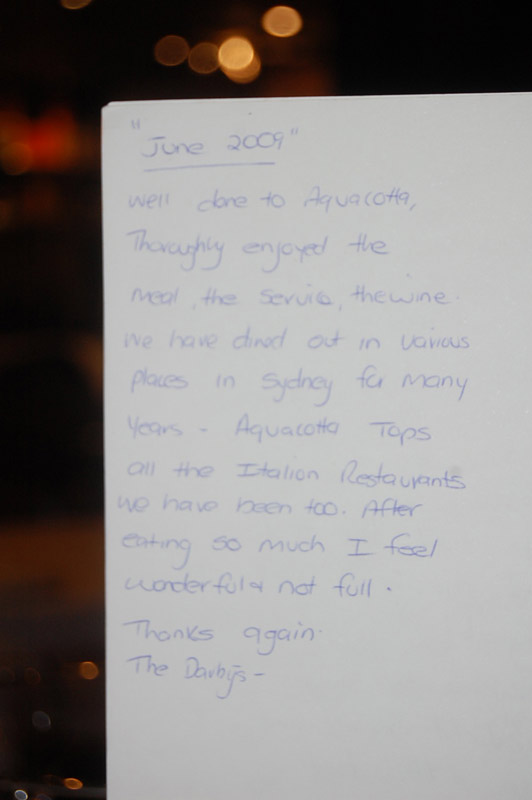 "June 2009"
Well done to Aquacotta,
Thoroughly enjoyed the
meal, the service, the wine.
We have dined out in various
places in Sydney for many
years - Aquacotta Tops
all the Italian Restaurants
we have been too. After
eating so much I feel
wonderful & not full.
Thanks again.
The Darby's -